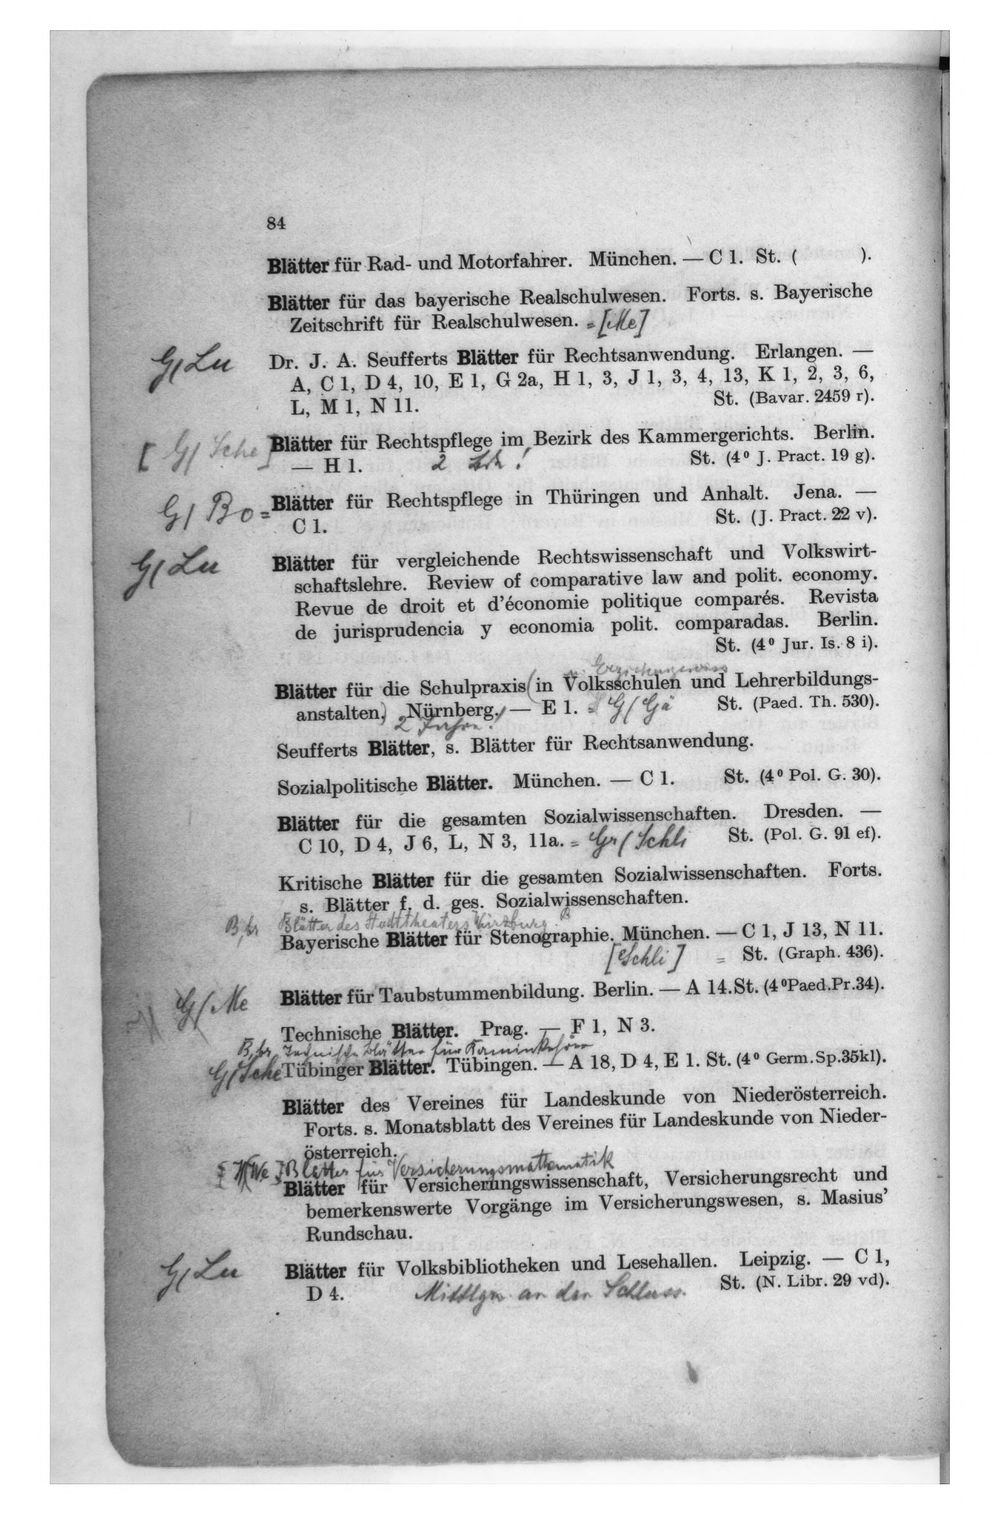 84
Blätter für Rad- und Motorfahrer. München. — C 1. St. ( ).
Blätter für das bayerische Realschulwesen. Forts. s. Bayerische
Zeitschrift für Realschulwesen. = [Me]
G/Lu Dr. J. A. Seufferts Blätter für Rechtsanwendung. Erlangen. —
A, C 1, D 4, 10, E 1, G 2a, H 1, 3, J 1, 3, 4, 13, K 1, 2, 3, 6,
L, M 1, N 11. St. (Bavar. 2459 r).
[G/Sche] Blätter für Rechtspflege im Bezirk des Kammergerichts. Berlin.
— H 1. 2 ! St. (4⁰ J. Pract. 19 g).
G/Bo = Blätter für Rechtspflege in Thüringen und Anhalt. Jena. —
C 1. St. (J. Pract. 22 v).
G/Lu Blätter für vergleichende Rechtswissenschaft und Volkswirt-
schaftslehre. Review of comparative law and polit. economy.
Revue de droit et d'économie politique comparés. Revista
de jurisprudencia y economia polit. comparadas. Berlin.
St. (4⁰ Jur. Is. 8 i).
Blätter für die Schulpraxis (in Volksschulen und Lehrerbildungs-
anstalten) Nürnberg. — E 1. G/Gä St. (Paed. Th. 530).
Seufferts Blätter, s. Blätter für Rechtsanwendung.
Sozialpolitische Blätter. München. — C 1. St. (4⁰ Pol. G. 30).
Blätter für die gesamten Sozialwissenschaften. Dresden. —
C 10, D 4, J 6, L, N 3, 11a. = Gr/Schli St. (Pol. G. 91 ef).
Kritische Blätter für die gesamten Sozialwissenschaften. Forts.
s. Blätter f. d. ges. Sozialwissenschaften.
Blätter des Stadttheaters Würzburg. B
Bayerische Blätter für Stenographie. München. — C 1, J 13, N 11.
[Schli] = St. (Graph. 436).
G/Me Blätter für Taubstummenbildung. Berlin. — A 14. St. (4⁰ Paed. Pr. 34).
Technische Blätter. Prag. — F 1, N 3.
Technische Blätter für
G/Sche Tübinger Blätter. Tübingen. — A 18, D 4, E 1. St. (4⁰ Germ. Sp. 35kl).
Blätter des Vereines für Landeskunde von Niederösterreich.
Forts. s. Monatsblatt des Vereines für Landeskunde von Nieder-
österreich.
Blätter für Versicherungsmathematik
Blätter für Versicherungswissenschaft, Versicherungsrecht und
bemerkenswerte Vorgänge im Versicherungswesen, s. Masius'
Rundschau.
G/Lu Blätter für Volksbibliotheken und Lesehallen. Leipzig. — C 1,
D 4. an den Schluss. St. (N. Libr. 29 vd).